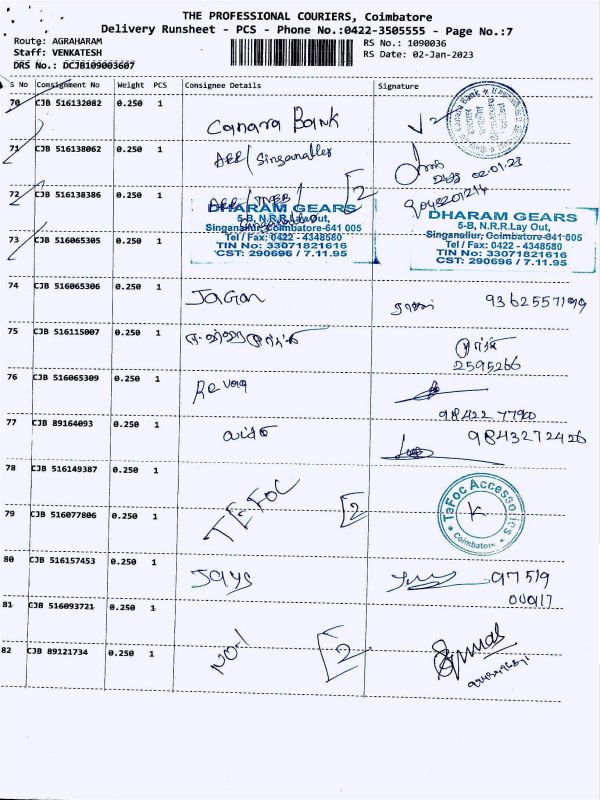 THE PROFESSIONAL COURIERS, Coimbatore
Delivery Runsheet - PCS - Phone No.:0422-3505555 - Page No.:7
Route: AGRAHARAM
RS No.: 1090036
Staff: VENKATESH
RS Date: 02-Jan-2023
DRS No.: DCJB109003607
S No Consignment No Weight PCS Consignee Details Signature
70 CJB 516132082 0.250 1 Canara Bank
71 CJB 516138062 0.250 1 Singanallur 02.01.23
72 CJB 516138386 0.250 1 2
DHARAM GEARS
5-B, N.R.R.Lay Out,
Singanallur, Coimbatore-641 005
Tel / Fax: 0422 - 4348580
TIN No: 33071821616
CST: 290696 / 7.11.95
DHARAM GEARS
5-B, N.R.R.Lay Out,
Singanallur, Coimbatore-641 005
Tel / Fax: 0422 - 4348580
TIN No: 33071821616
CST: 290696 / 7.11.95
73 CJB 516065305 0.250 1
74 CJB 516065306 0.250 1 Jagan
75 CJB 516115007 0.250 1 2595266
76 CJB 516065309 0.250 1 Revathy
98422 77900
77 CJB 89164093 0.250 1 9843272426
78 CJB 516149387 0.250 1
79 CJB 516077806 0.250 1 TEFOC 2
TeFoc Accessories
Coimbatore
80 CJB 516157453 0.250 1 Jays 97519
00917
81 CJB 516093721 0.250 1
82 CJB 89121734 0.250 1 NO-1 2